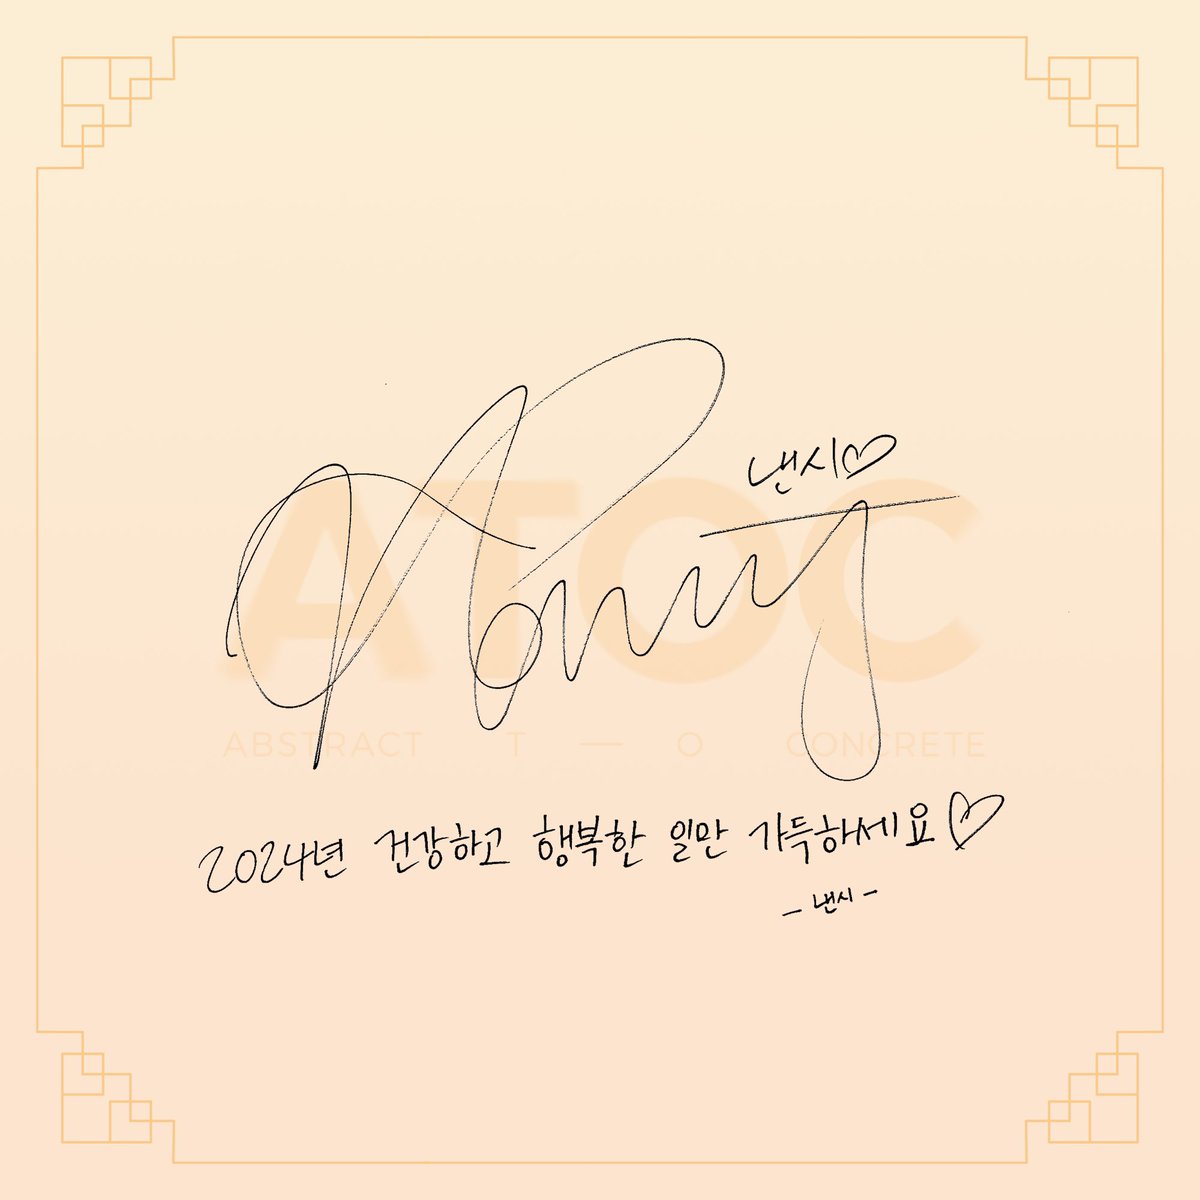 낸시♡
Nancy
ATOC
ABSTRACT T — O CONCRETE
2024년 건강하고 행복한 일만 가득하세요♡
- 낸시 -